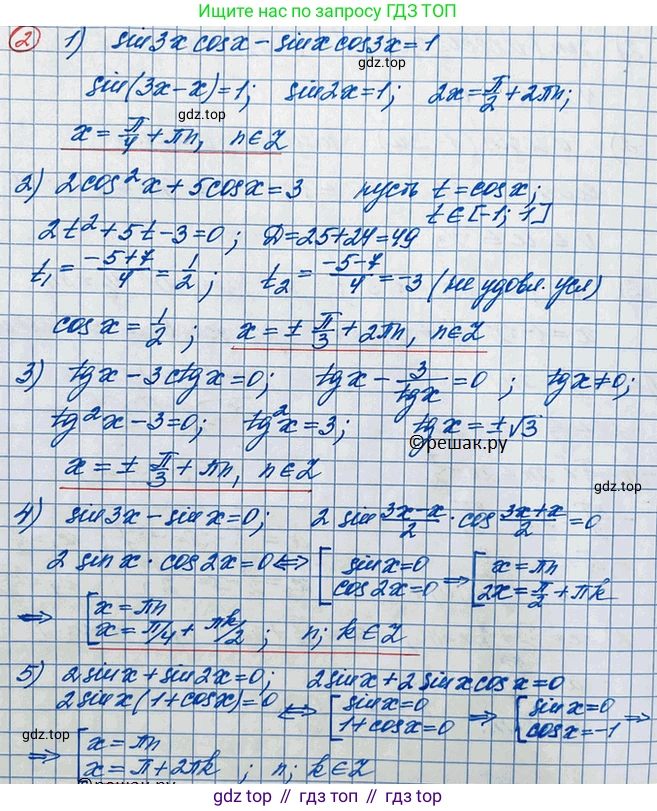 Ищите нас по запросу ГДЗ ТОП
2 1) sin3x cosx - sinx cos3x = 1
gdz.top
sin(3x-x)=1; sin2x=1; 2x = π/2 + 2πn;
gdz.top
x = π/4 + πn, n∈Z
2) 2cos²x + 5cosx = 3 пусть t = cosx;
t∈[-1; 1]
2t² + 5t - 3 = 0; D = 25+24 = 49
t₁ = (-5+7)/4 = 1/2; t₂ = (-5-7)/4 = -3 (не удовл. усл)
cosx = 1/2; x = ± π/3 + 2πn, n∈Z
3) tgx - 3ctgx = 0; tgx - 3/tgx = 0; tgx ≠ 0;
tg²x - 3 = 0; tg²x = 3; tgx = ±√3
©решак.ру
x = ± π/3 + πn, n∈Z
gdz.top
4) sin3x - sinx = 0; 2 sin (3x-x)/2 · cos (3x+x)/2 = 0
2 sinx · cos2x = 0 ⇔ [ sinx = 0 ⇒ [ x = πn
cos2x = 0 2x = π/2 + πk
⇒ [ x = πn
x = π/4 + πk/2; n; k∈Z
5) 2sinx + sin2x = 0; 2sinx + 2sinxcosx = 0
2sinx(1+cosx) = 0 ⇔ [ sinx = 0 ⇒ [ sinx = 0 ⇒
1+cosx = 0 cosx = -1
⇒ [ x = πn
x = π + 2πk; n; k∈Z
gdz.top // гдз.топ // гдз.top